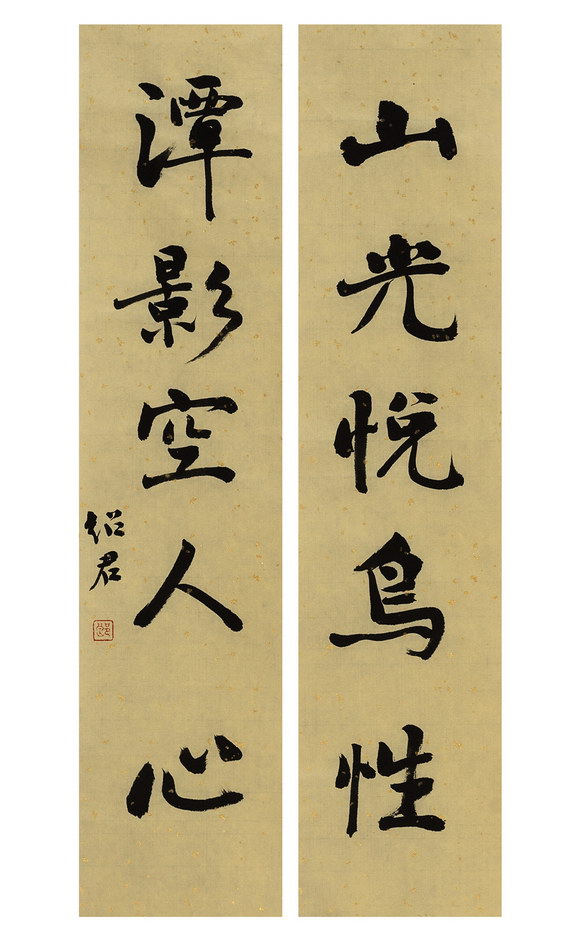 山光悦鳥性
潭影空人心
绍君